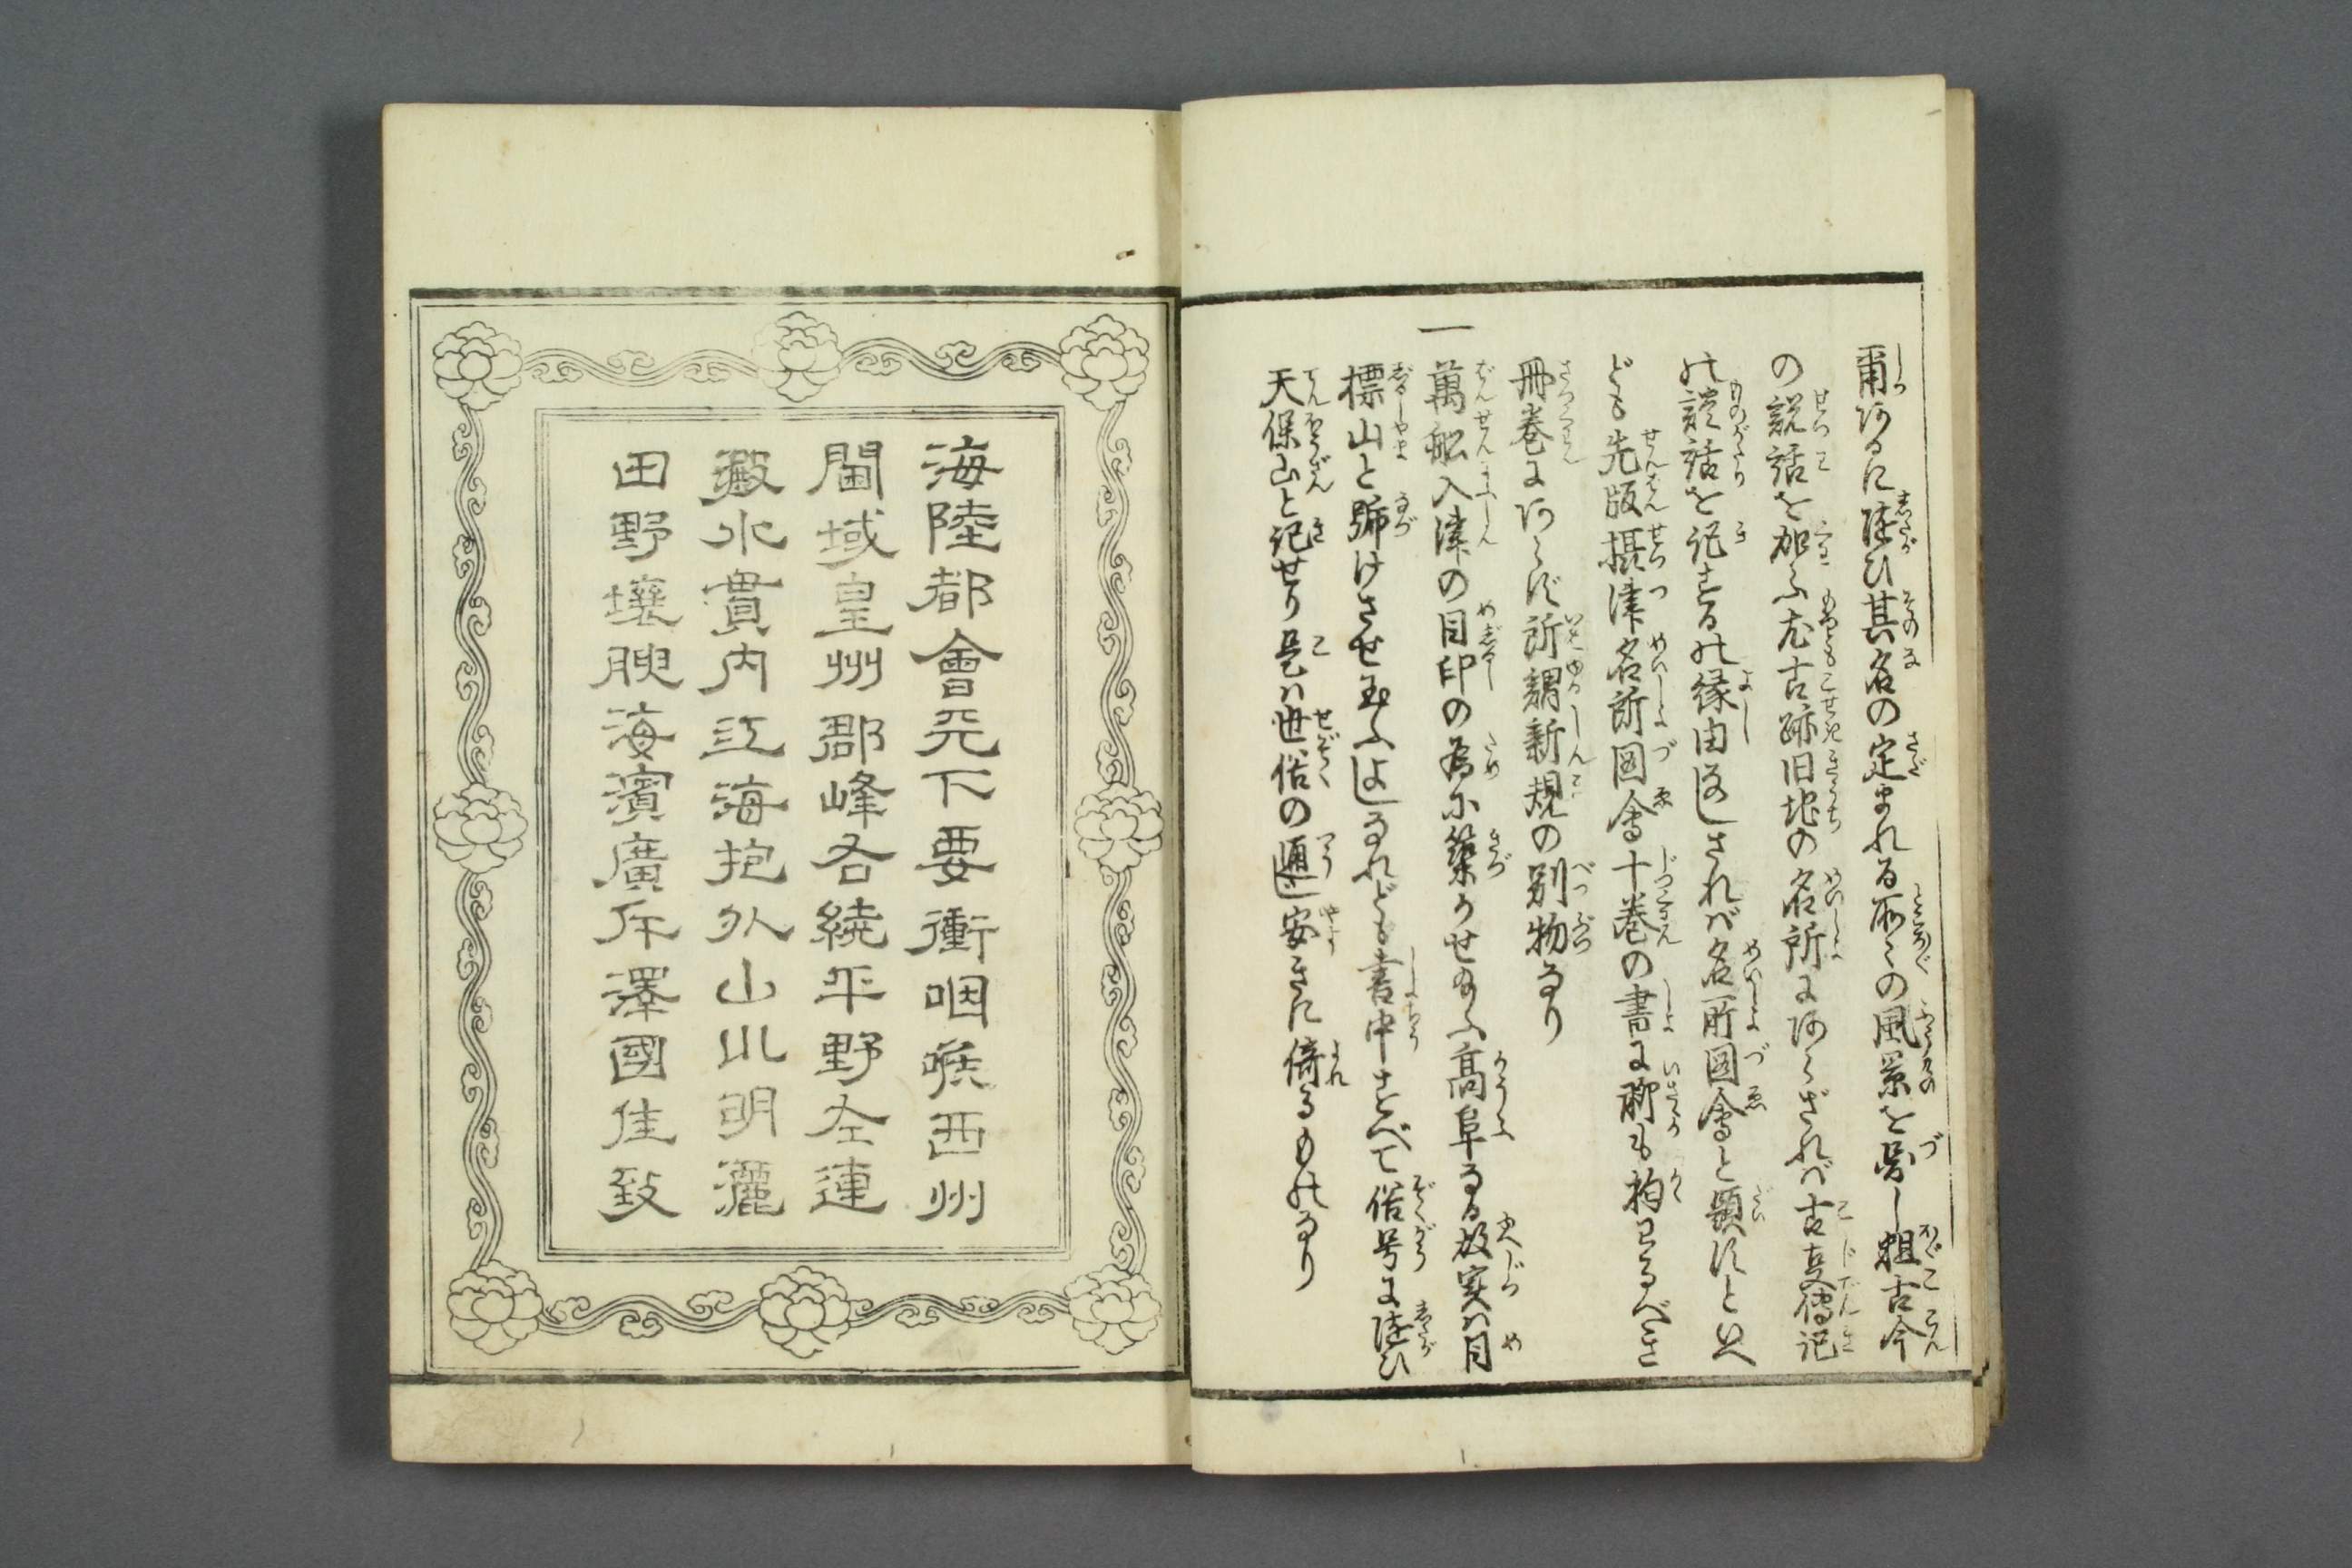 爾あるに随ひ其名の定まれる所々の風景を図し粗古今
の説話を加ふ尤古跡旧地の名所にあらざれば古事傳記
の談話を記するの縁由なしされば名所図會と題すといへ
ども先版摂津名所図會十巻の書に聊も拘はるべき
冊巻にあらず所謂新規の別物なり
一
萬舩入津の目印の為に築かせ給ふ高阜なる故実は目
標山と號けさせ玉ふよしなれども書中すべて俗号に随ひ
天保山と記せり是は世俗の通じ安きに倚るものなり
海陸都會天下要衝咽喉西州
閫域皇州郡峰各繞平野左連
澱水貫内江海抱外山川明麗
田野壤腴海濱廣斥澤國佳致